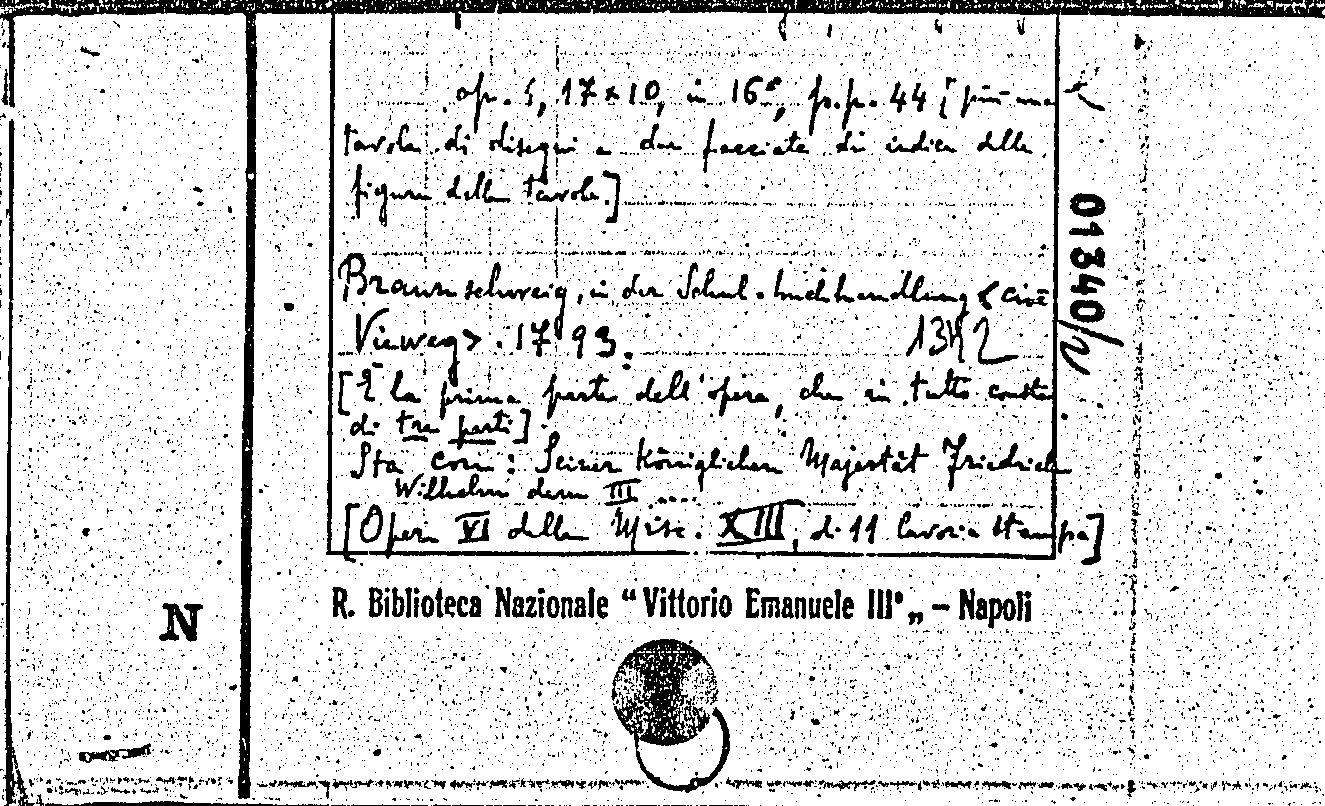 op. 5, 17×10, in 16°, pp. 44 [più una
tavola di disegni e due facciate di indice delle
figure delle tavole.]
Braunschweig, in der Schul-buchhandlung < cioè
Vieweg > . 1793.
[È la prima parte dell'opera, che in tutto consta
di tre parti].
Sta con: Seiner Königlichen Majestät Friedrich
Wilhelm dem III ....
[Opera VI della Misc. XIII, di 11 lavori a stampa]
01340/
R. Biblioteca Nazionale “Vittorio Emanuele III„ – Napoli
N